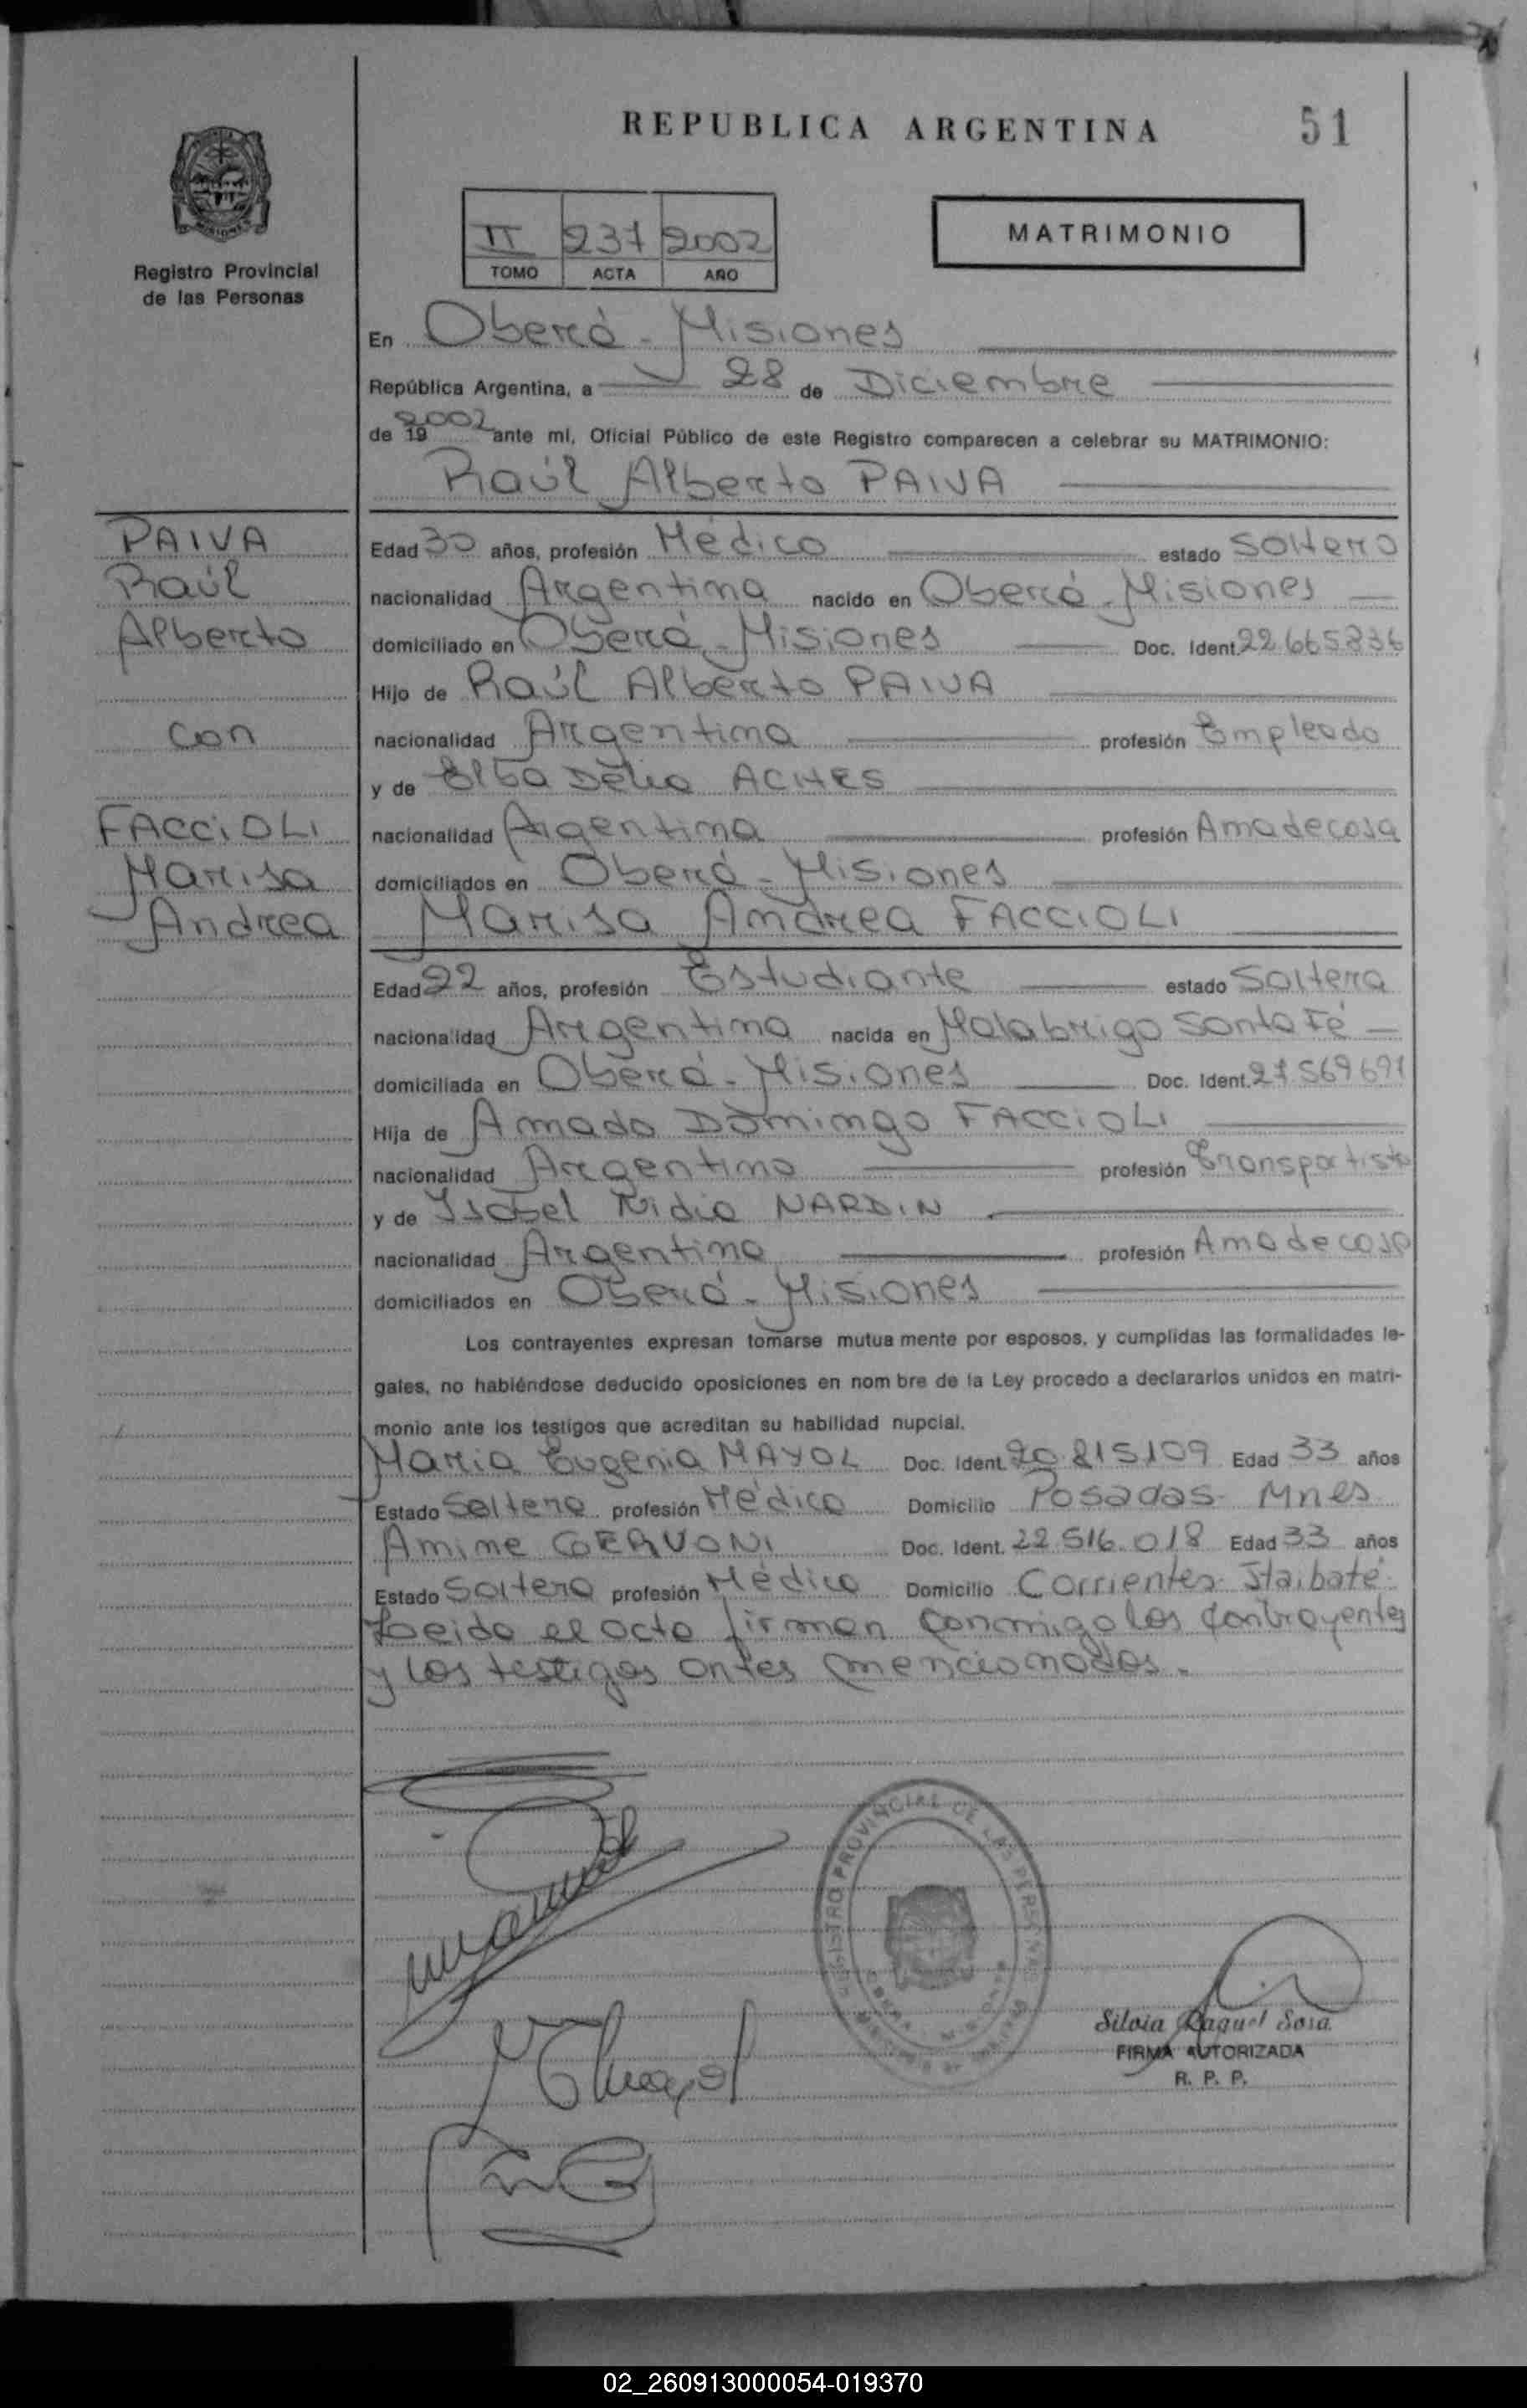 REPUBLICA ARGENTINA
51
II 237 2002
TOMO ACTA AÑO
MATRIMONIO
Registro Provincial
de las Personas
En Oberá - Misiones
República Argentina, a 28 de Diciembre
de 19 2002 ante mi, Oficial Público de este Registro comparecen a celebrar su MATRIMONIO:
Raúl Alberto PAIVA
PAIVA
Raúl
Alberto
con
FACCIOLI
Marisa
Andrea
Edad 30 años, profesión Médico estado Soltero
nacionalidad Argentina nacido en Oberá - Misiones
domiciliado en Oberá - Misiones Doc. Ident. 22.665.836
Hijo de Raúl Alberto PAIVA
nacionalidad Argentina profesión Empleado
y de Elba Delia ACHES
nacionalidad Argentina profesión Ama de casa
domiciliados en Oberá - Misiones
Marisa Andrea FACCIOLI
Edad 22 años, profesión Estudiante estado Soltera
nacionalidad Argentina nacida en Malabrigo Santa Fé
domiciliada en Oberá - Misiones Doc. Ident. 27.569.691
Hija de Amado Domingo FACCIOLI
nacionalidad Argentina profesión Transportista
y de Isabel Nidia NARDIN
nacionalidad Argentina profesión Ama de casa
domiciliados en Oberá - Misiones
Los contrayentes expresan tomarse mutua mente por esposos, y cumplidas las formalidades le-
gales, no habiéndose deducido oposiciones en nom bre de la Ley procedo a declararlos unidos en matri-
monio ante los testigos que acreditan su habilidad nupcial.
Maria Eugenia MAYOL Doc. Ident. 20.815.109 Edad 33 años
Estado Soltera profesión Médica Domicilio Posadas Mnes
Amine CERVONI Doc. Ident. 22.516.018 Edad 33 años
Estado Soltera profesión Médica Domicilio Corrientes Itaibaté
Leida el acta firman conmigo los contrayentes
y los testigos antes mencionados.
REGISTRO PROVINCIAL DE LAS PERSONAS
Silvia Raquel Sosa
FIRMA AUTORIZADA
R. P. P.
02_260913000054-019370